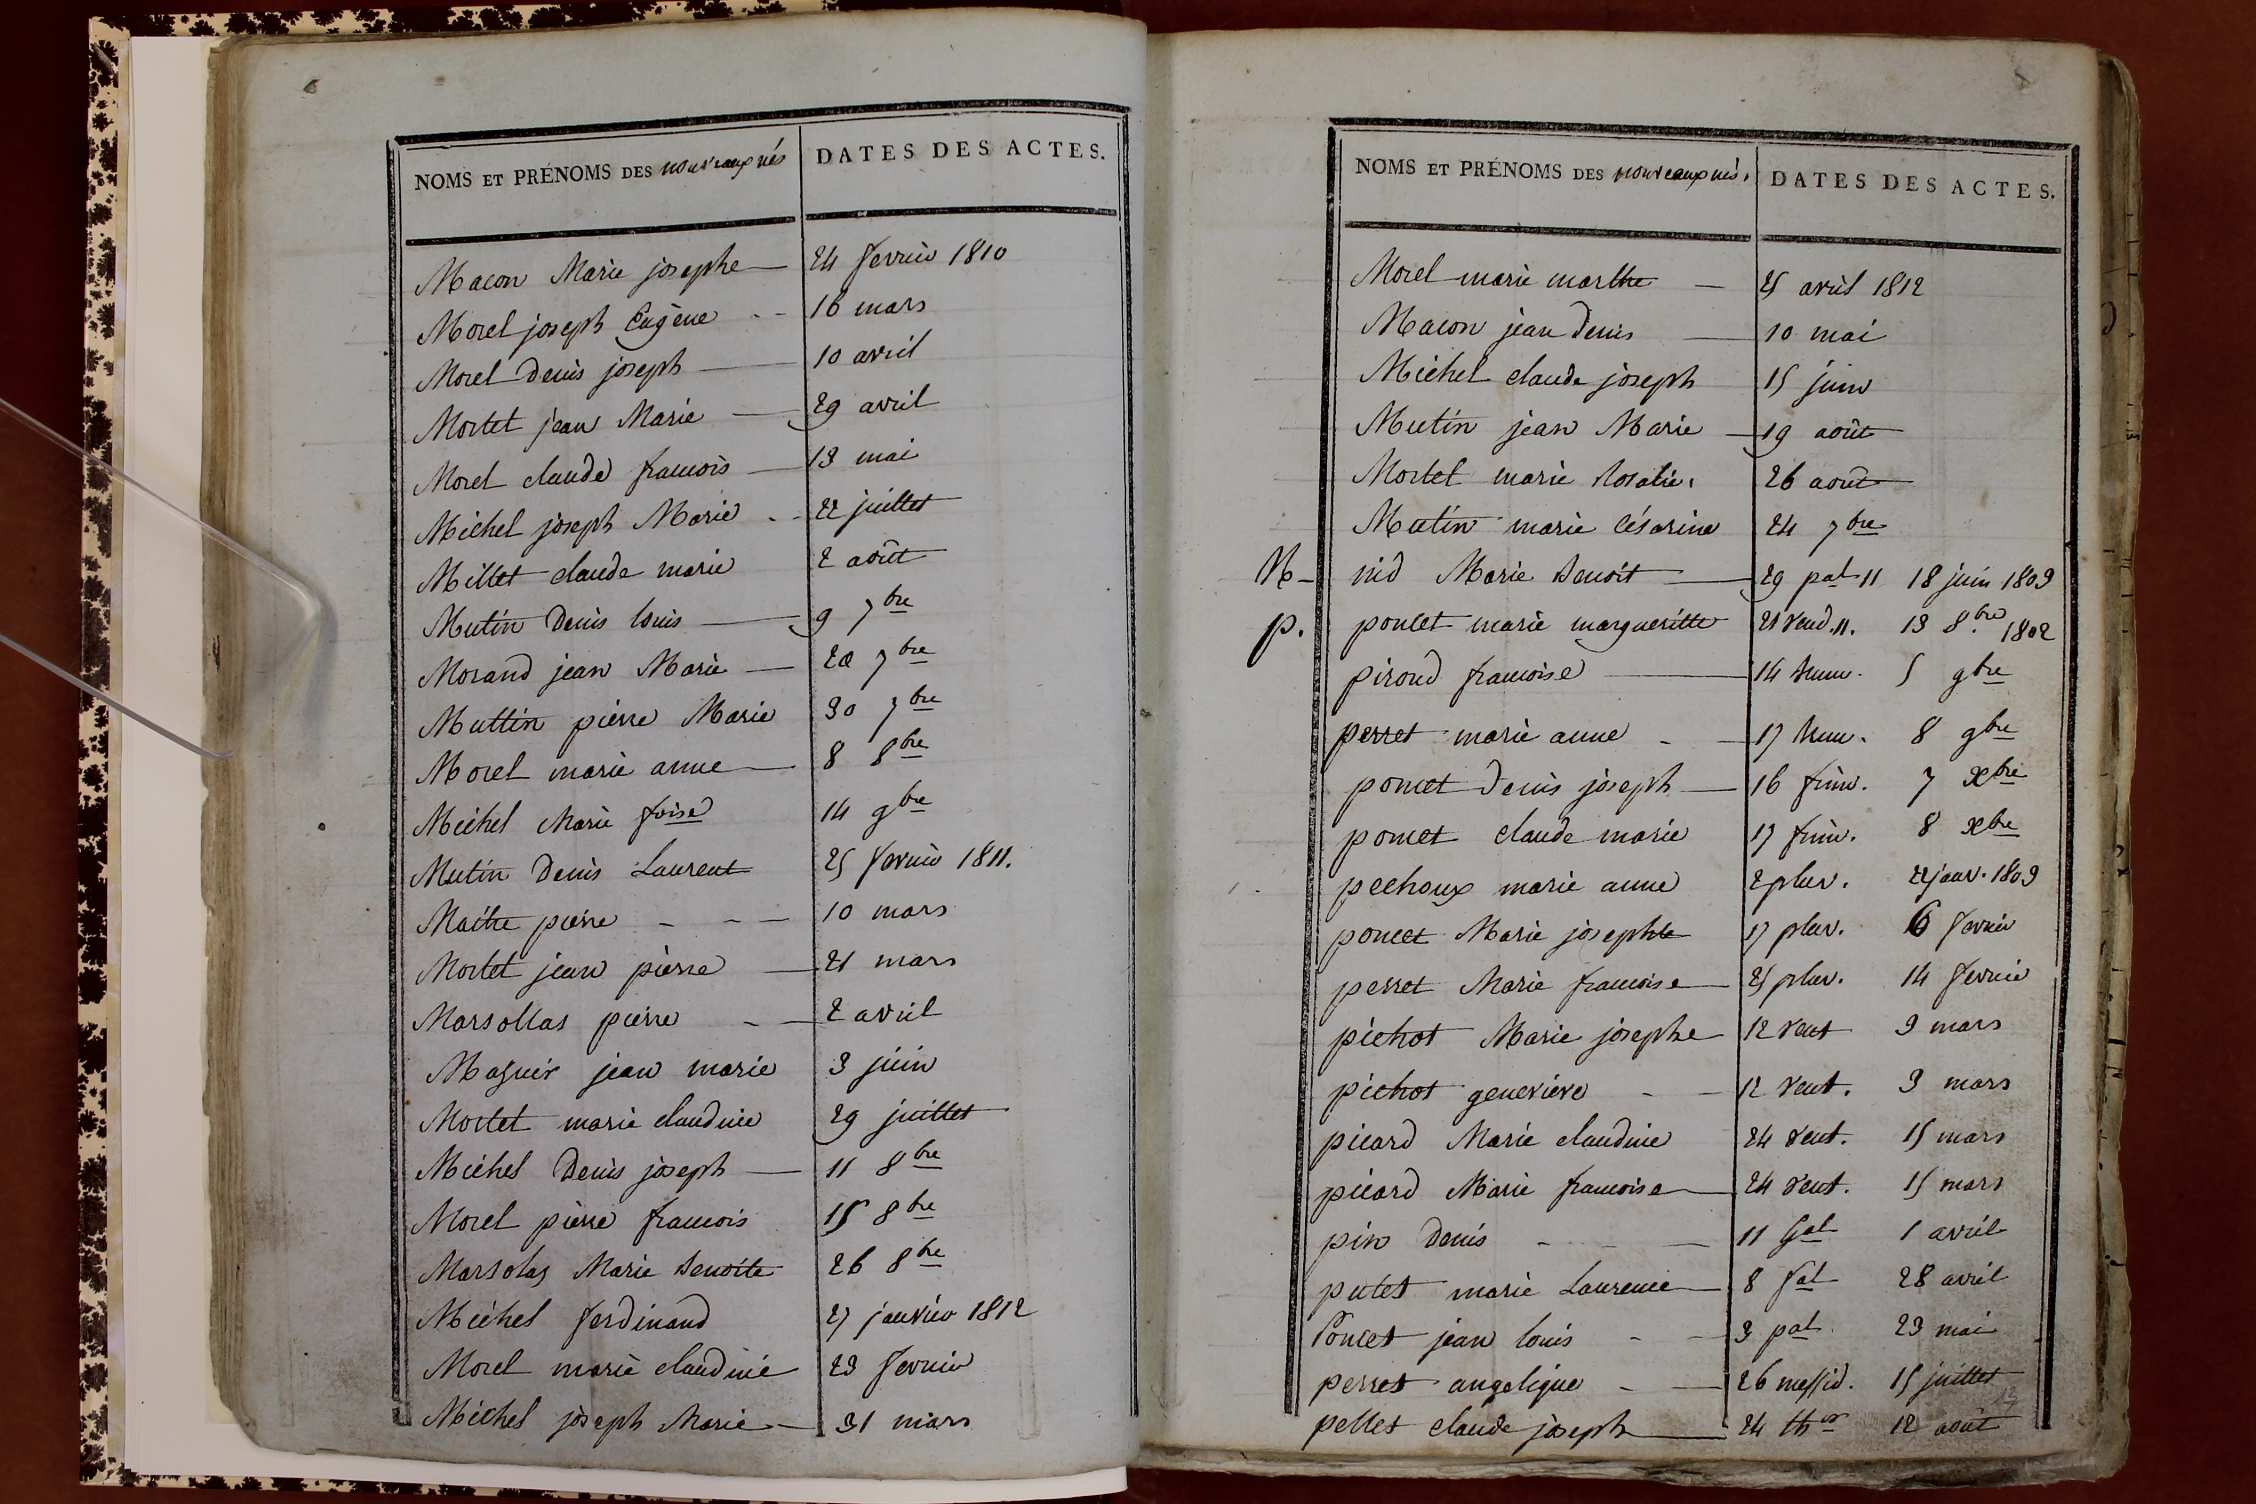 NOMS ET PRÉNOMS DES nouveaux nés DATES DES ACTES.
Macon Marie josephe 24 fevrier 1810
Morel joseph Eugène 16 mars
Morel Denis joseph 10 avril
Mortet jean Marie 29 avril
Morel claude francois 13 mai
Michel joseph Marie 22 juillet
Millet claude marie 2 août
Mutin Denis louis 9 7bre
Morand jean Marie 7bre
Muttin pierre Marie 30 7bre
Morel marie anne 8 8bre
Michel Marie foise 14 9bre
Mutin Denis Laurent 25 fevrier 1811.
Maitre pierre 10 mars
Mortet jean pierre 21 mars
Marsollas pierre 2 avril
jean marie 3 juin
Mortet marie claudine 29 juillet
Michel Denis joseph 11 8bre
Morel pierre francois 15 8bre
Marsolas Marie benoite 26 8bre
Michel ferdinand 27 janvier 1812
Morel marie claudine 23 fevrier
Michel joseph Marie 31 mars
NOMS ET PRÉNOMS DES nouveaux nés. DATES DES ACTES.
Morel marie marthe 25 avril 1812
Macon jean denis 10 mai
Michel claude joseph 15 juin
Mutin jean Marie 19 août
Mortet marie Rosalie. 26 août
Mutin marie Césarine 24 7bre
N - nid Marie benoit 29 pal 11 18 juin 1803
p. poncet marie margueritte 21 vend. 11. 13 8.bre 1802
piroud francoise 14 brum. 5 9bre
perret marie anne 17 brum. 8 9bre
poncet Denis joseph 16 frim. 7 xbre
poncet claude marie 17 frim. 8 xbre
pechoux marie anne 2 pluv. 22 janv. 1803
poncet Marie josephte 17 pluv. 6 fevrier
perret Marie francoise 25 pluv. 14 fevrier
pichot Marie josephe 12 vent 3 mars
pichot genevieve 12 vent. 3 mars
picard Marie claudine 24 vent. 15 mars
picard Marie francoise 24 vent. 15 mars
pin Denis 11 gal 1 avril
putet marie Laurence 8 fal 28 avril
Poncet jean louis 3 pal 23 mai
perret angelique 26 messid. 15 juillet
pellet claude joseph 24 thor 12 août